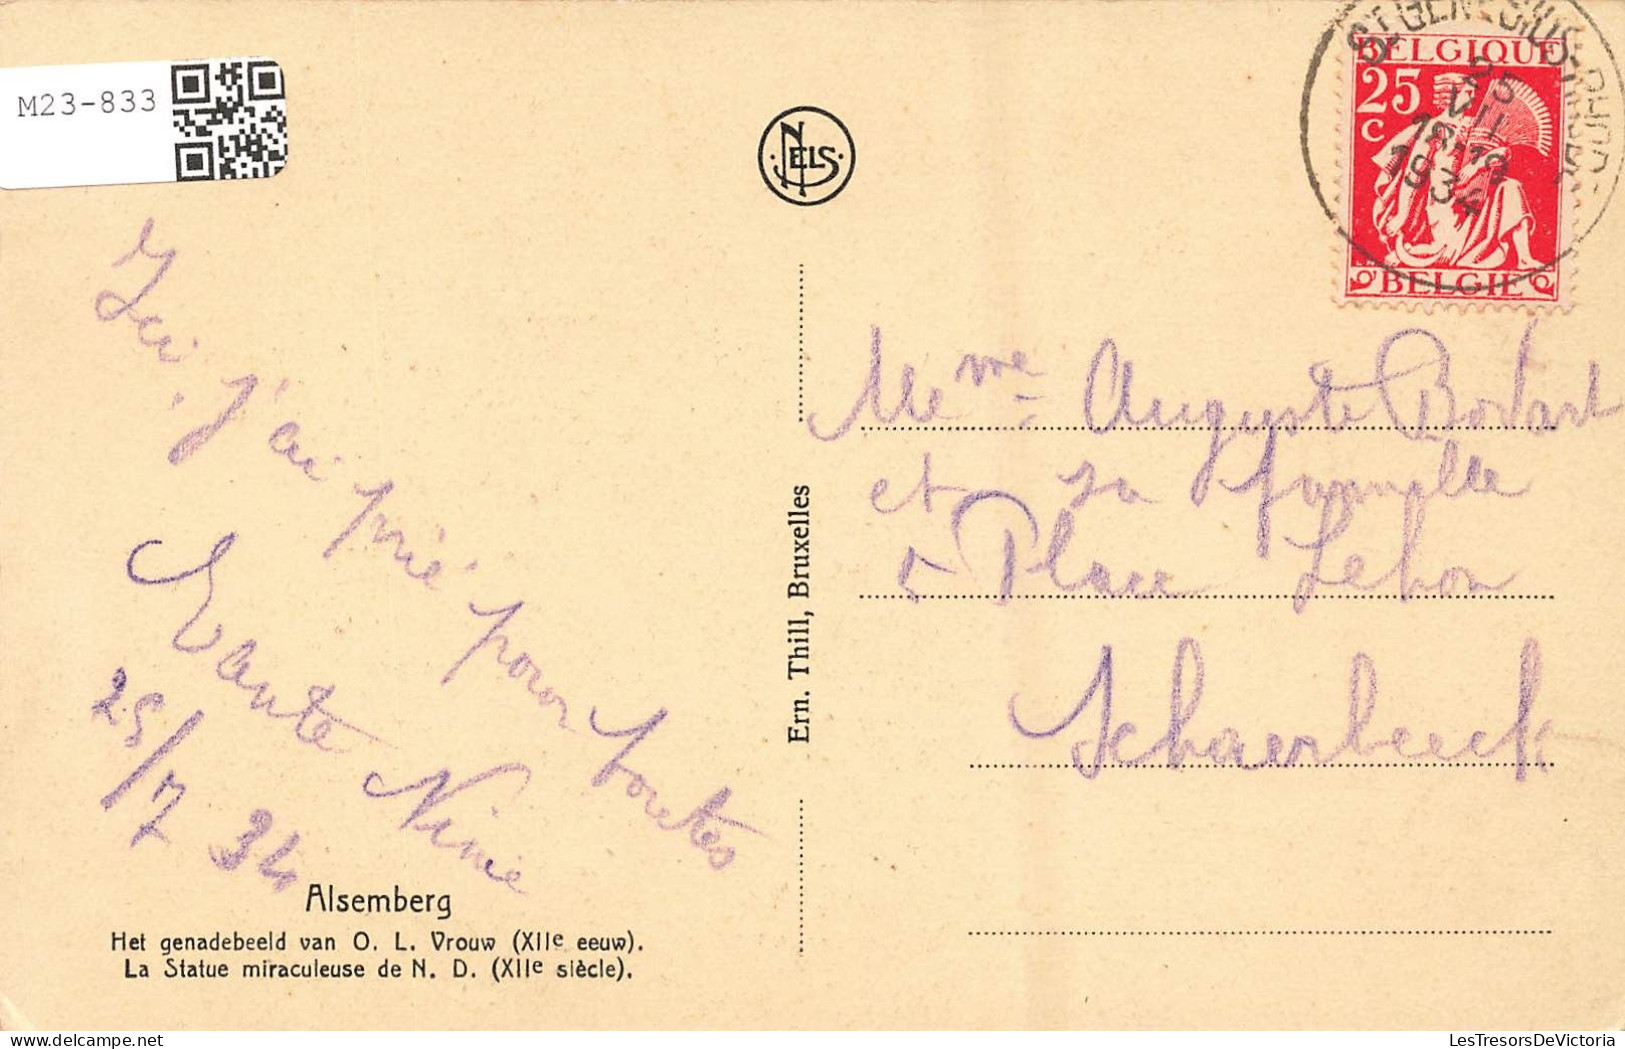 M23-833
NELS
ST GEN
25
VII
18-19
1934
BELGIQUE
25
C
BELGIE
Ici, j'ai prié pour toutes
Tante Ninie
25/7 34
Mme Auguste Bodart
et sa famille
Place Lehon
Schaerbeeck
Ern. Thill, Bruxelles
Alsemberg
Het genadebeeld van O. L. Vrouw (XIIe eeuw).
La Statue miraculeuse de N. D. (XIIe siècle).
LesTresorsDeVictoria